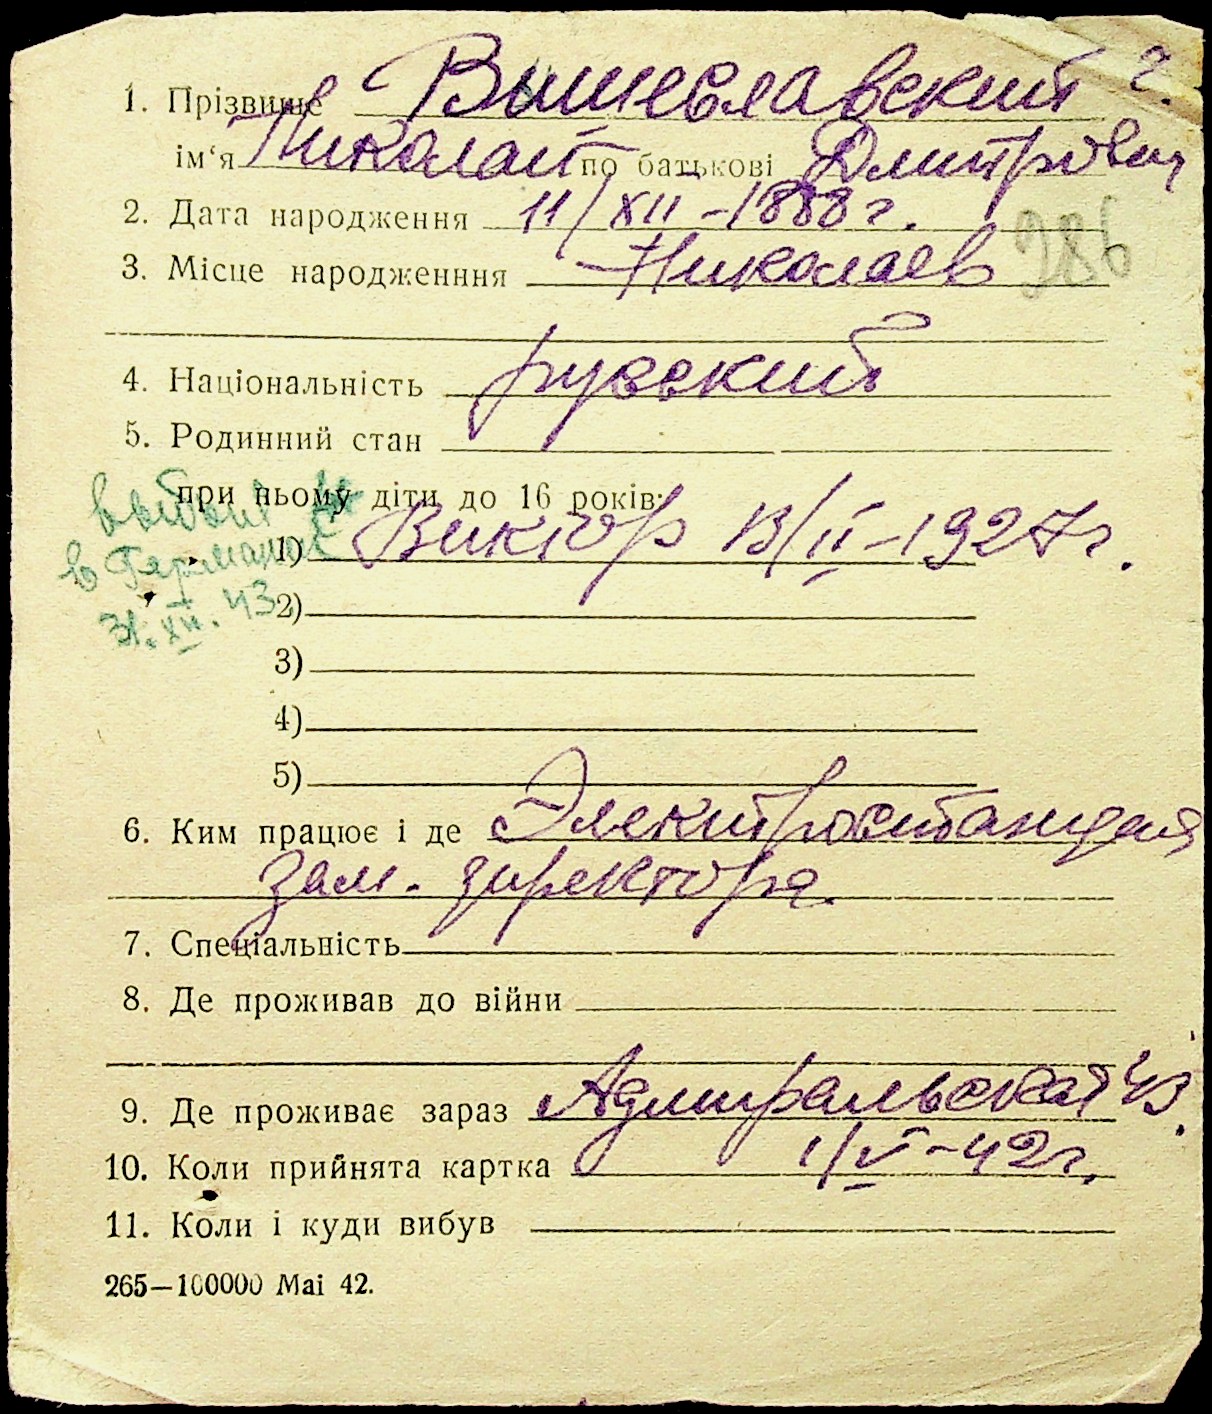 1. Прізвище Вышеславский г.
ім‘я Николай по батькові Дмитрович
2. Дата народження 11/XII-1888 г.
286
3. Місце народженння Николаев
4. Національність русский
5. Родинний стан
при ньому діти до 16 років:
1) Виктор 13/II-1927 г.
выбыл
в Германию
31.XII.43
2)
3)
4)
5)
6. Ким працює і де Электростанция
зам. директора.
7. Спеціальність
8. Де проживав до війни
9. Де проживає зараз Адмиральская 43.
10. Коли прийнята картка 1/V-42 г.
11. Коли і куди вибув
265—100000 Mai 42.